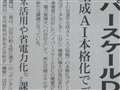 バースケールD
成AI本格化で
来活用や省電力化、課